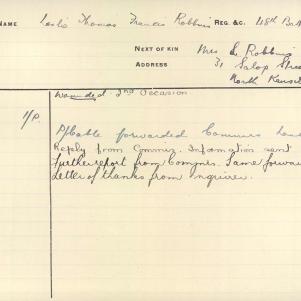 NAME Leslie Thomas Francis Robbins REG. &C. 48th Ba
NEXT OF KIN Mrs E. Robbins
ADDRESS 31 Salop Stree
North Kensi
Wounded 2nd Occasion
1/P. Pp Cable forwarded Commrs Lon
Reply from Commrs. Information sent
Further report from Commrs. Same forwar
Letter of thanks from Inquirer.